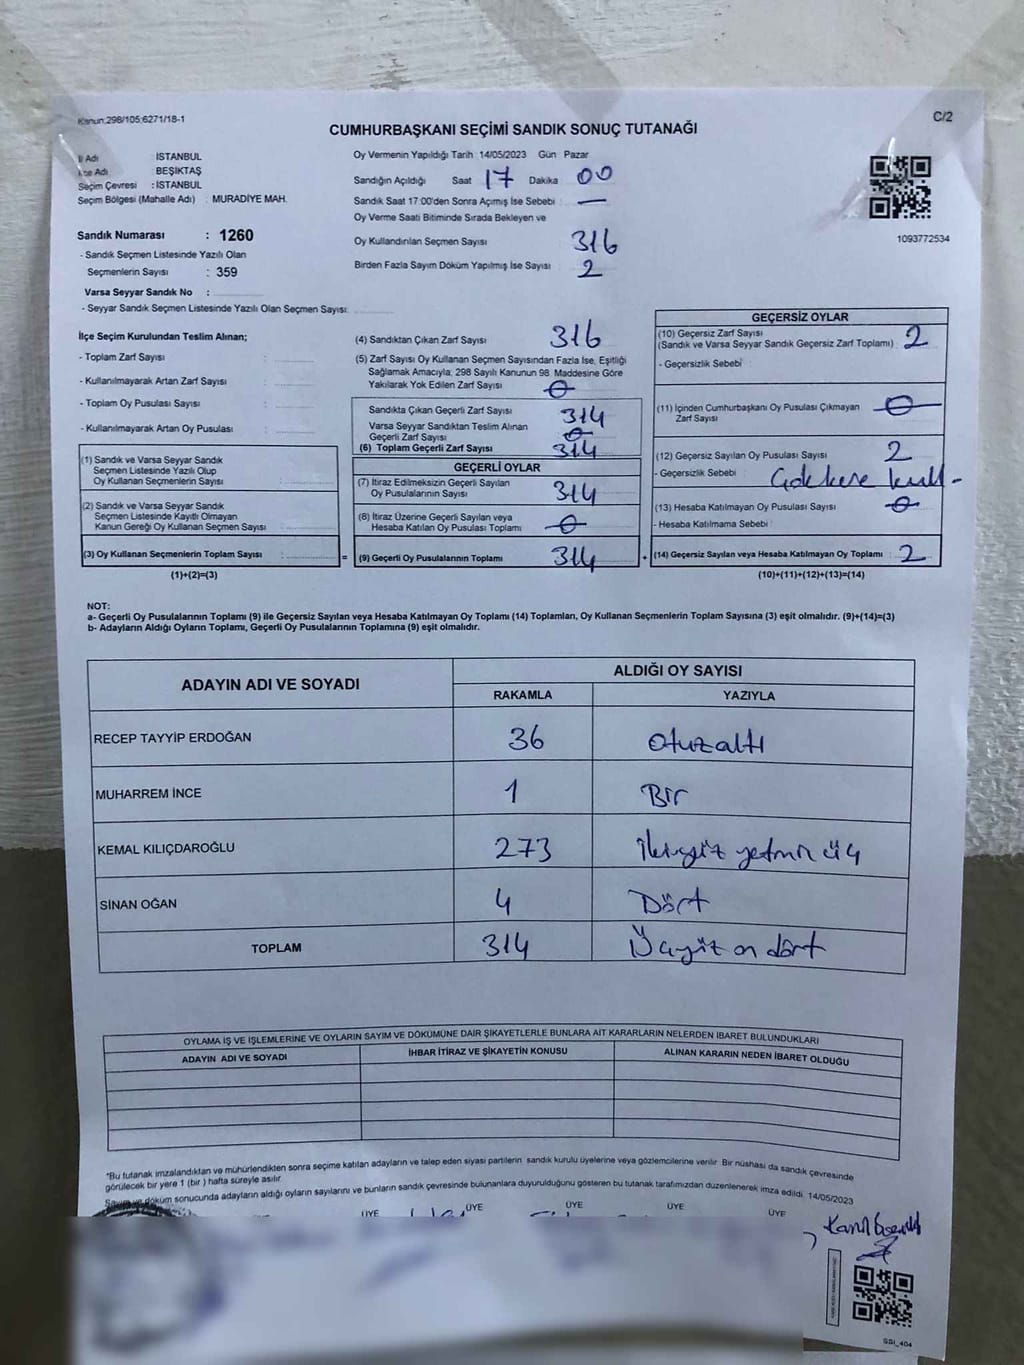 Kanun:298/105;6271/18-1
C/2
CUMHURBAŞKANI SEÇİMİ SANDIK SONUÇ TUTANAĞI
İl Adı : İSTANBUL
İlçe Adı : BEŞİKTAŞ
Seçim Çevresi : İSTANBUL
Seçim Bölgesi (Mahalle Adı) : MURADİYE MAH.
Sandık Numarası : 1260
- Sandık Seçmen Listesinde Yazılı Olan
Seçmenlerin Sayısı : 359
Varsa Seyyar Sandık No :
- Seyyar Sandık Seçmen Listesinde Yazılı Olan Seçmen Sayısı:
Oy Vermenin Yapıldığı Tarih 14/05/2023 Gün Pazar
Sandığın Açıldığı Saat 17 Dakika 00
Sandık Saat 17:00'den Sonra Açımış İse Sebebi : —
Oy Verme Saati Bitiminde Sırada Bekleyen ve
Oy Kullandırılan Seçmen Sayısı 316
Birden Fazla Sayım Döküm Yapılmış İse Sayısı 2
1093772534
İlçe Seçim Kurulundan Teslim Alınan;
- Toplam Zarf Sayısı :
- Kullanılmayarak Artan Zarf Sayısı :
- Toplam Oy Pusulası Sayısı :
- Kullanılmayarak Artan Oy Pusulası :
(1) Sandık ve Varsa Seyyar Sandık
Seçmen Listesinde Yazılı Olup
Oy Kullanan Seçmenlerin Sayısı :
(2) Sandık ve Varsa Seyyar Sandık
Seçmen Listesinde Kayıtlı Olmayan
Kanun Gereği Oy Kullanan Seçmen Sayısı :
(3) Oy Kullanan Seçmenlerin Toplam Sayısı : =
(1)+(2)=(3)
(4) Sandıktan Çıkan Zarf Sayısı 316
(5) Zarf Sayısı Oy Kullanan Seçmen Sayısından Fazla İse, Eşitliği
Sağlamak Amacıyla; 298 Sayılı Kanunun 98. Maddesine Göre
Yakılarak Yok Edilen Zarf Sayısı 0
Sandıkta Çıkan Geçerli Zarf Sayısı 314
Varsa Seyyar Sandıktan Teslim Alınan
Geçerli Zarf Sayısı 0
(6) Toplam Geçerli Zarf Sayısı 314
GEÇERLİ OYLAR
(7) İtiraz Edilmeksizin Geçerli Sayılan
Oy Pusulalarının Sayısı 314
(8) İtiraz Üzerine Geçerli Sayılan veya
Hesaba Katılan Oy Pusulası Toplamı 0
(9) Geçerli Oy Pusulalarının Toplamı 314 +
GEÇERSİZ OYLAR
(10) Geçersiz Zarf Sayısı
(Sandık ve Varsa Seyyar Sandık Geçersiz Zarf Toplamı) 2
- Geçersizlik Sebebi
(11) İçinden Cumhurbaşkanı Oy Pusulası Çıkmayan
Zarf Sayısı 0
(12) Geçersiz Sayılan Oy Pusulası Sayısı 2
- Geçersizlik Sebebi :
(13) Hesaba Katılmayan Oy Pusulası Sayısı 0
- Hesaba Katılmama Sebebi :
(14) Geçersiz Sayılan veya Hesaba Katılmayan Oy Toplamı : 2
(10)+(11)+(12)+(13)=(14)
NOT:
a- Geçerli Oy Pusulalarının Toplamı (9) ile Geçersiz Sayılan veya Hesaba Katılmayan Oy Toplamı (14) Toplamları, Oy Kullanan Seçmenlerin Toplam Sayısına (3) eşit olmalıdır. (9)+(14)=(3)
b- Adayların Aldığı Oyların Toplamı, Geçerli Oy Pusulalarının Toplamına (9) eşit olmalıdır.
ADAYIN ADI VE SOYADI
ALDIĞI OY SAYISI
RAKAMLA YAZIYLA
RECEP TAYYİP ERDOĞAN 36 otuzaltı
MUHARREM İNCE 1 Bir
KEMAL KILIÇDAROĞLU 273 ikiyüz yetmiş üç
SİNAN OĞAN 4 Dört
TOPLAM 314 Üçyüz on dört
OYLAMA İŞ VE İŞLEMLERİNE VE OYLARIN SAYIM VE DÖKÜMÜNE DAİR ŞİKAYETLERLE BUNLARA AİT KARARLARIN NELERDEN İBARET BULUNDUKLARI
ADAYIN ADI VE SOYADI İHBAR İTİRAZ VE ŞİKAYETİN KONUSU ALINAN KARARIN NEDEN İBARET OLDUĞU
*Bu tutanak imzalandıktan ve mühürlendikten sonra seçime katılan adayların ve talep eden siyasi partilerin sandık kurulu üyelerine veya gözlemcilerine verilir. Bir nüshası da sandık çevresinde
görülecek bir yere 1 (bir) hafta süreyle asılır.
Sayım ve döküm sonucunda adayların aldığı oyların sayılarını ve bunların sandık çevresinde bulunanlara duyurulduğunu gösteren bu tutanak tarafımızdan düzenlenerek imza edildi. 14/05/2023
ÜYE ÜYE ÜYE ÜYE ÜYE
SSİ_404